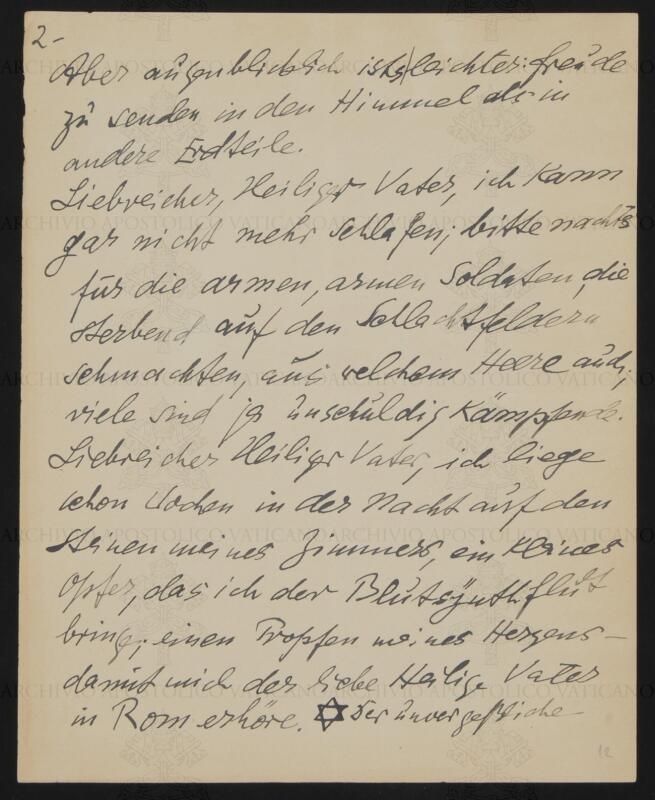 2-
Aber augenblicklich ists leichter: freude
zu senden in den Himmel als in
andere Erdteile.
Liebreicher, Heiliger Vater, ich kann
gar nicht mehr schlafen; bitte nachts
für die armen, armen Soldaten, die
sterbend auf den Schlachtfeldern
schmachten, aus welchem Heere auch,
viele sind ja unschuldig Kämpfende.
Liebreicher Heiliger Vater, ich liege
schon Wochen in der Nacht auf den
Steinen meines Zimmers, ein kleines
Opfer, das ich der Blutsynthflut
bringe; einen Tropfen meines Herzens –
damit mich der liebe Heilige Vater
in Rom erhöre. ✡ Der unvergeßliche
12
ARCHIVIO APOSTOLICO VATICANO